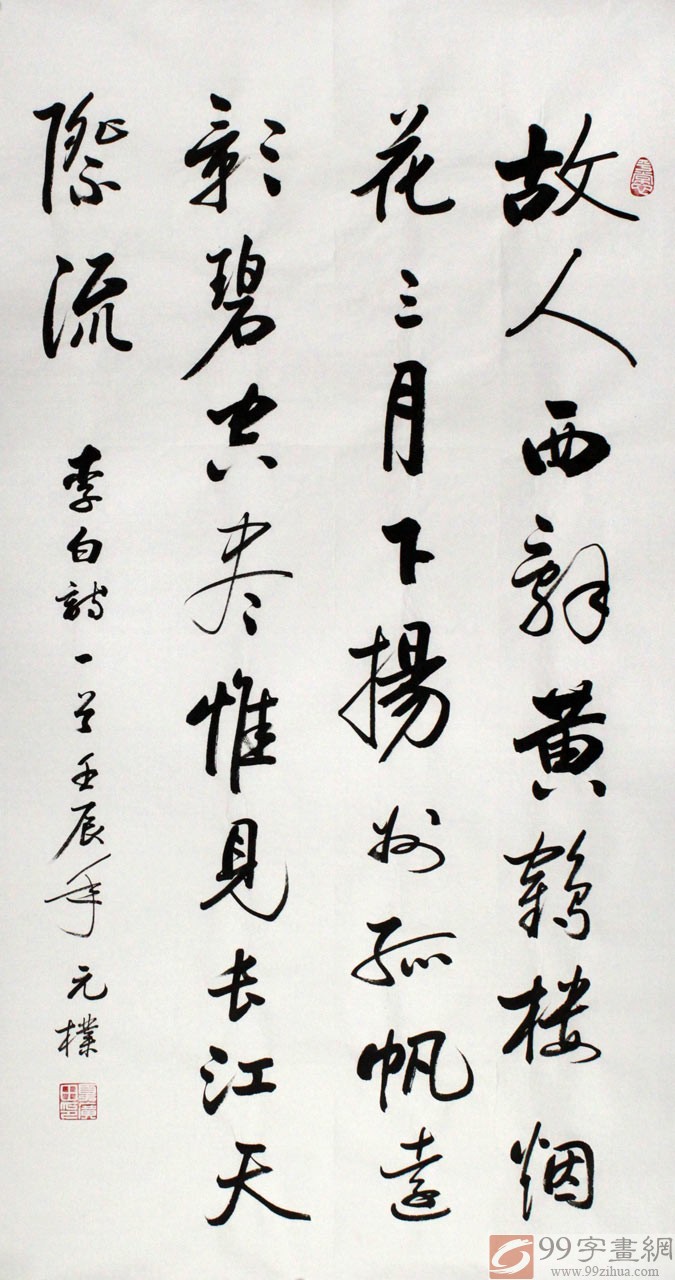 故人西辞黄鹤楼烟
花三月下揚州孤帆远
彰碧空尽惟見长江天
際流
李白詩一首壬辰年元樸
99字畫網
www.99zihua.com